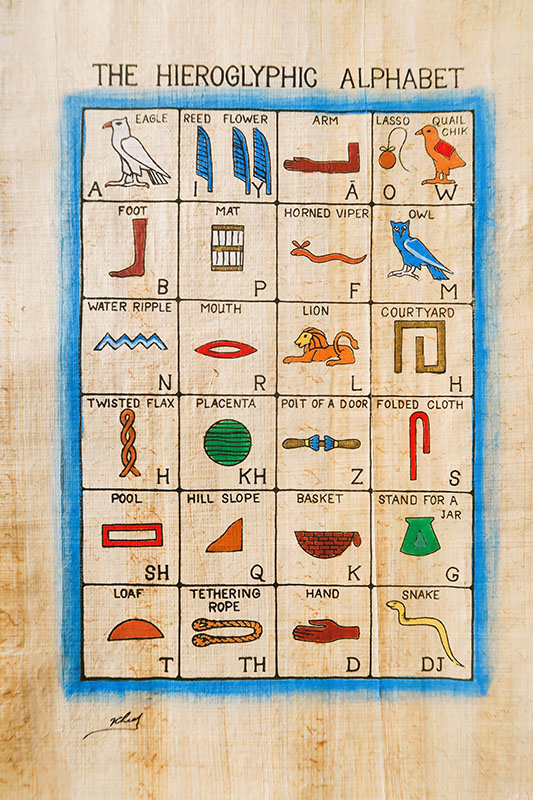 THE HIEROGLYPHIC ALPHABET
EAGLE
A
REED FLOWER
I Y
ARM
Ā
LASSO QUAIL
CHIK
O W
FOOT
B
MAT
P
HORNED VIPER
F
OWL
M
WATER RIPPLE
N
MOUTH
R
LION
L
COURTYARD
H
TWISTED FLAX
H
PLACENTA
KH
POIT OF A DOOR
Z
FOLDED CLOTH
S
POOL
SH
HILL SLOPE
Q
BASKET
K
STAND FOR A
JAR
G
LOAF
T
TETHERING
ROPE
TH
HAND
D
SNAKE
DJ